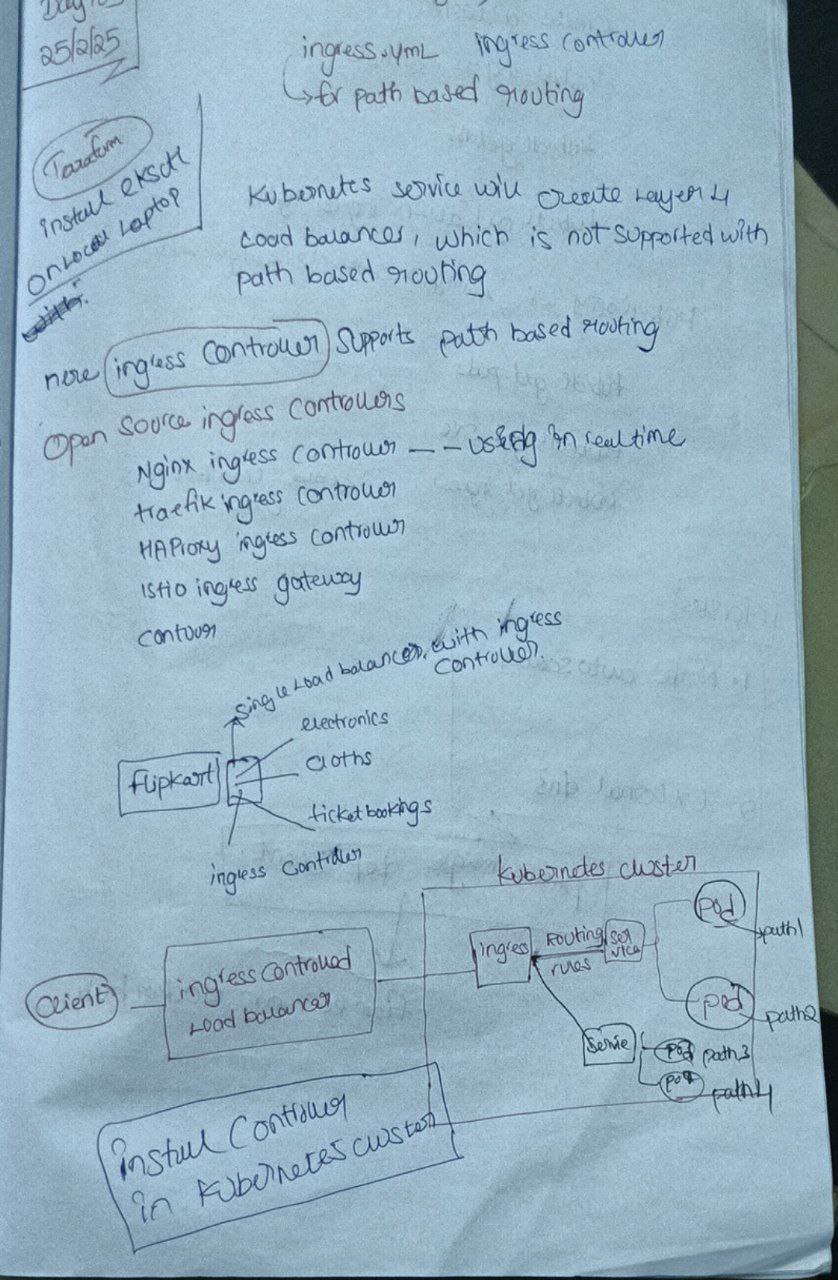 25/2/25
ingress.yml ingress controller
for path based routing
Taraform
install eksctl
on Local Laptop
Kubernetes service will create Layer 4
Load balancer, which is not supported with
path based routing
here ingress controller supports path based routing
Open source ingress controllers
Nginx ingress controller -- using in realtime
traefik ingress controller
HAProxy ingress controller
Istio ingress gateway
contour
single Load balancer, with ingress
controller.
flipkart
electronics
cloths
ticket bookings
ingress controller
kubernetes cluster
client
ingress controlled
Load balancer
ingress
Routing
rules
ser
vice
pod
path1
pod
path2
Servie
pod path3
pod path4
install controller
in kubernetes cluster